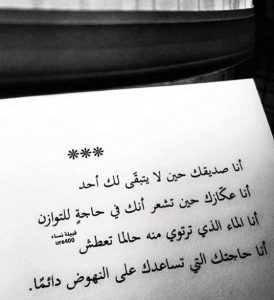 ***
أنا صديقك حين لا يتبقّى لك أحد
أنا عكّازك حين تشعر أنك في حاجةٍ للتوازن
أنا الماء الذي ترتوي منه حالما تعطش
قبيلة نساء
ure400
أنا حاجتك التي تساعدك على النهوض دائمًا.